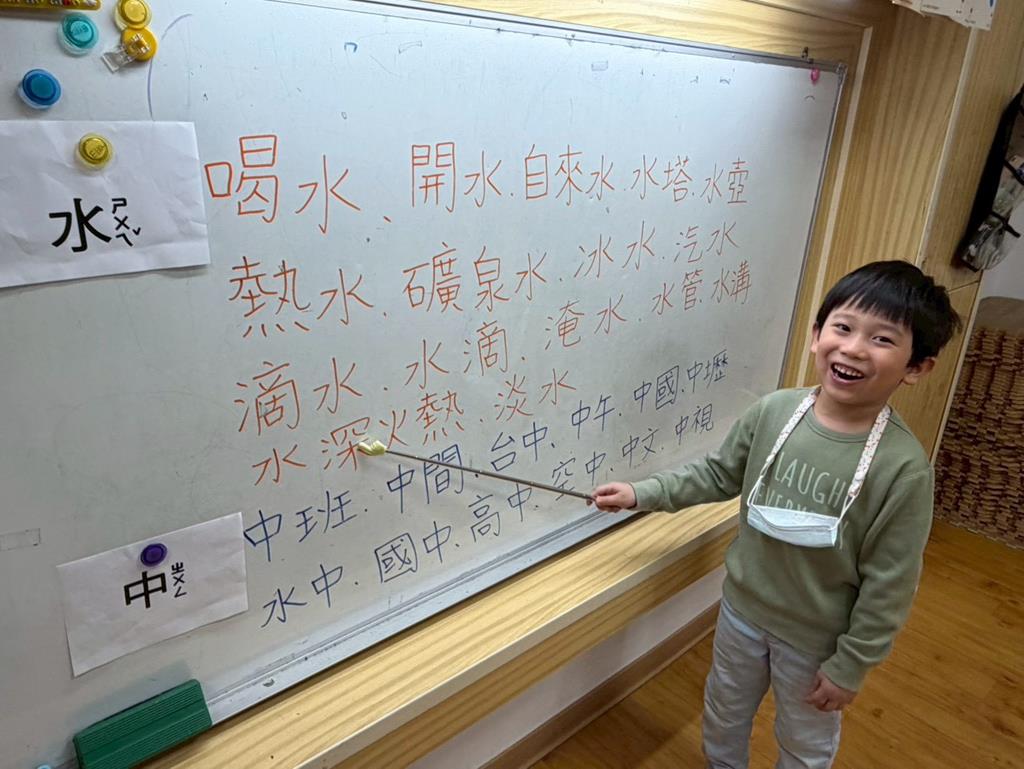 水 ㄕㄨㄟˇ
喝水、開水.自來水.水塔.水壺
熱水.礦泉水.冰水.汽水
滴水.水滴.淹水.水管.水溝
水深火熱.淡水
中 ㄓㄨㄥ
中班.中間.台中.中午.中國.中壢
水中.國中.高中.空中.中文.中視
LAUGH